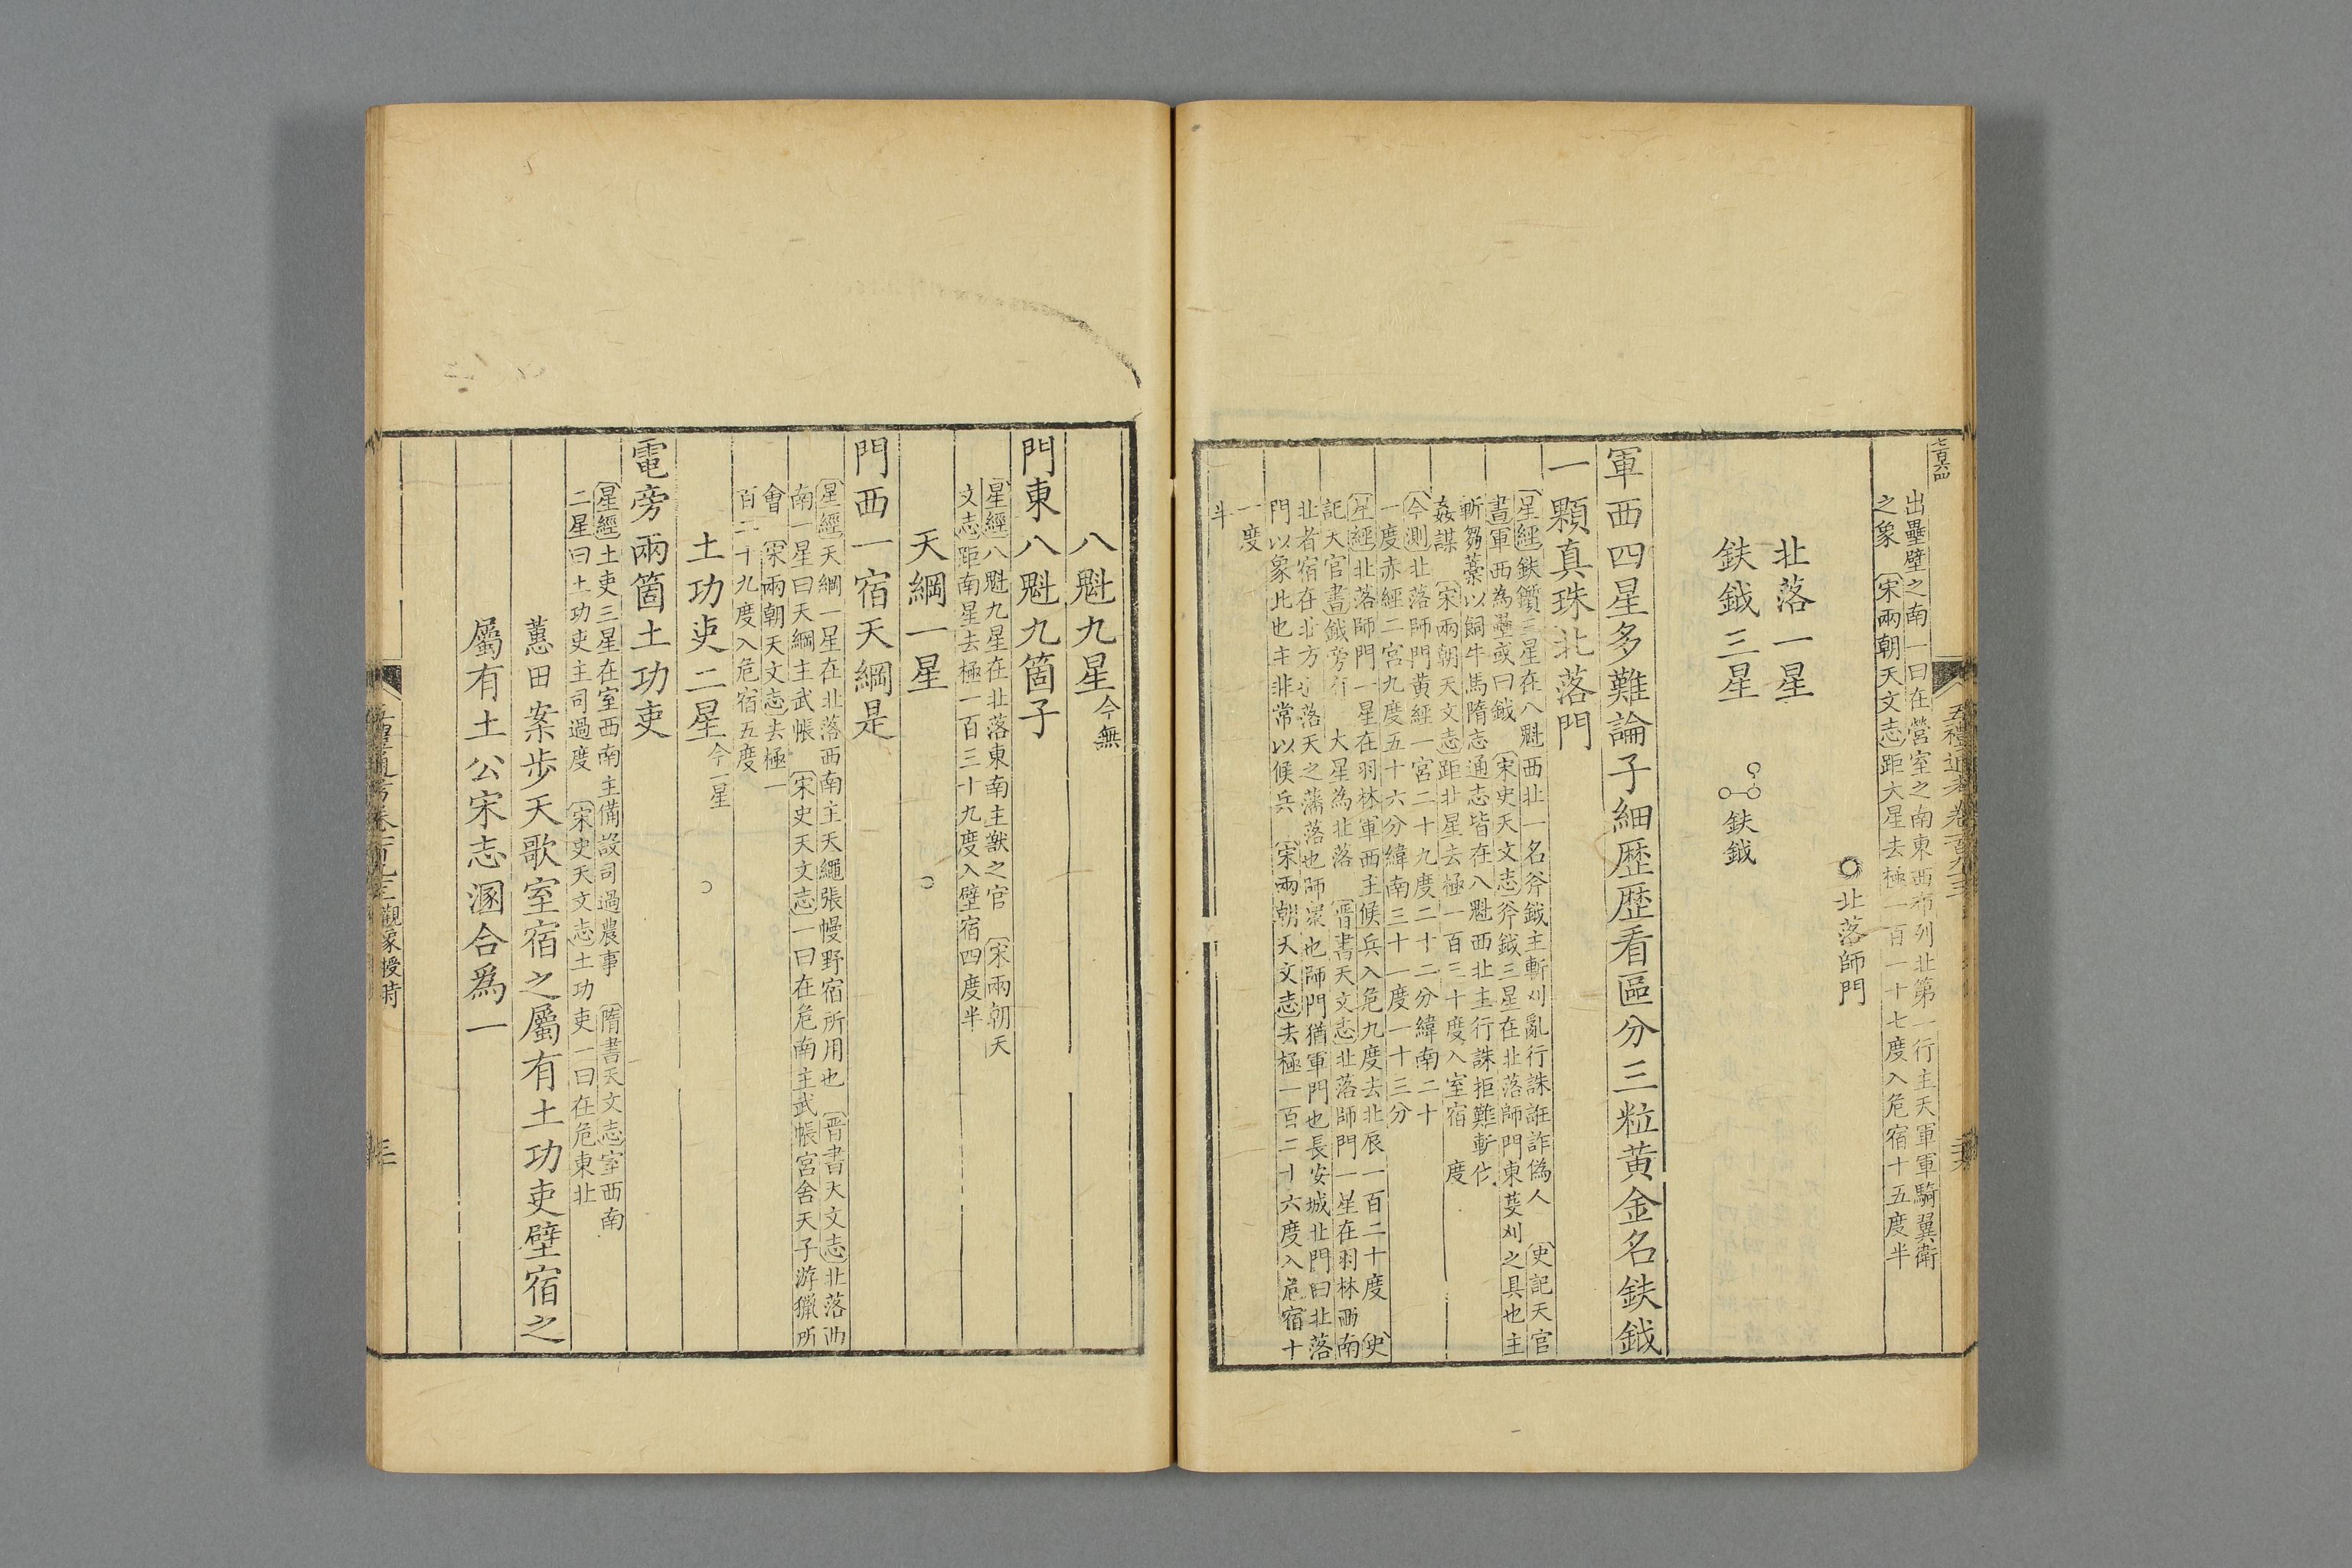 五禮通考卷百九十三
出壘壁之南一曰在營室之南東西布列北第一行主天軍軍騎翼衛
之象〔宋兩朝天文志〕距大星去極一百一十七度入危宿十五度半
北落師門
北落一星
鈇鉞三星
鈇鉞
軍西四星多難論子細歷歷看區分三粒黃金名鈇鉞
一顆真珠北落門
〔星經〕鈇鑕三星在八魁西北一名斧鉞主斬刈亂行誅誑詐偽人〔史記天官
書〕軍西為壘或曰鉞〔宋史天文志〕斧鉞三星在北落師門東芟刈之具也主
斬芻藁以飼牛馬隋志通志皆在八魁西北主行誅拒難斬伐
姦謀〔宋兩朝天文志〕距北星去極一百三十度入室宿 度
〔今測〕北落師門黃經一宮二十九度二十二分緯南二十
一度赤經二宮九度五十六分緯南三十一度一十三分
〔星經〕北落師門一星在羽林軍西主候兵入危九度去北辰一百二十度〔史
記天官書〕鉞旁有一大星為北落〔晉書天文志〕北落師門一星在羽林西南
北者宿在北方也落天之藩落也師眾也師門猶軍門也長安城北門曰北落
門以象此也主非常以候兵〔宋兩朝天文志〕去極一百二十六度入危宿十
一度
半
八魁九星今無
門東八魁九箇子
〔星經〕八魁九星在北落東南主獸之官〔宋兩朝天
文志〕距南星去極一百三十九度入壁宿四度半
天綱一星
門西一宿天綱是
〔星經〕天綱一星在北落西南主天繩張幔野宿所用也〔晉書天文志〕北落西
南一星曰天綱主武帳〔宋史天文志〕一曰在危南主武帳宮舍天子游獵所
會〔宋兩朝天文志〕去極一
百二十九度入危宿五度
土功吏二星今一星
電旁兩箇土功吏
〔星經〕土吏三星在室西南主備設司過農事〔隋書天文志〕室西南
二星曰土功吏主司過度〔宋史天文志〕土功吏一曰在危東北
蕙田案步天歌室宿之屬有土功吏壁宿之
屬有土公宋志溷合爲一
五禮通考卷百九十三觀象授時